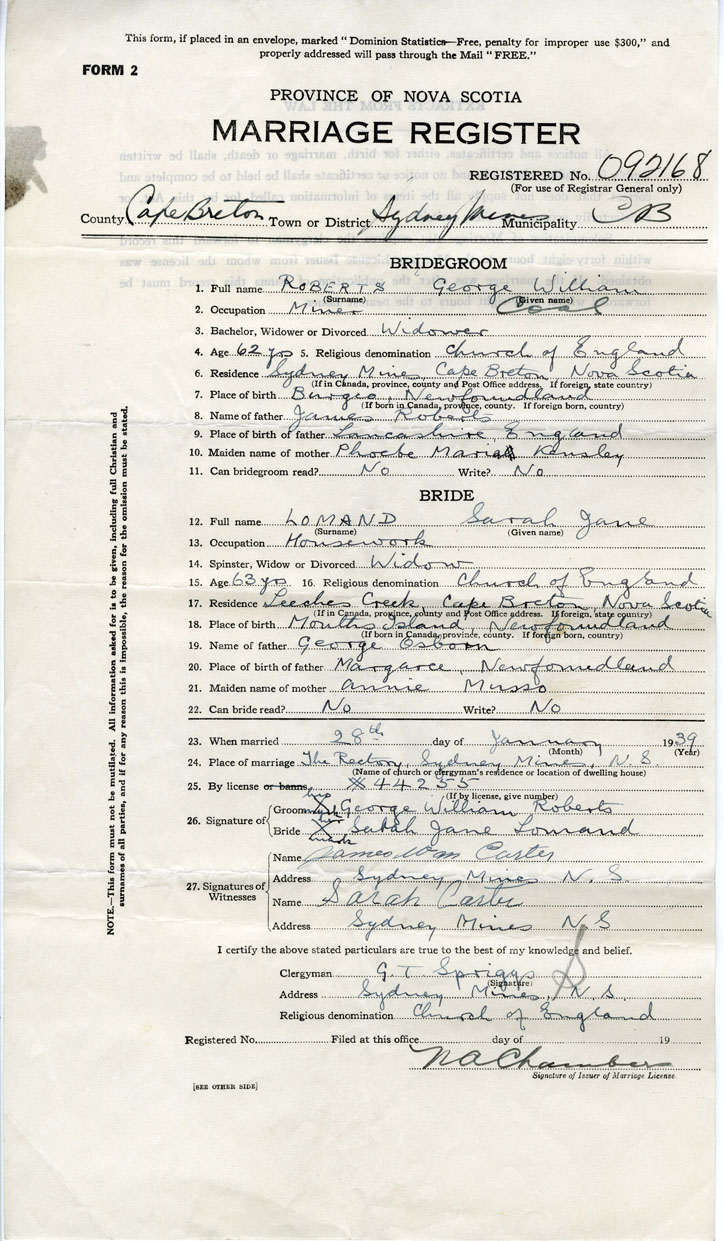 This form, if placed in an envelope, marked "Dominion Statistics—Free, penalty for improper use $300," and
properly addressed will pass through the Mail "FREE."
FORM 2
PROVINCE OF NOVA SCOTIA
MARRIAGE REGISTER
REGISTERED No. 092168
(For use of Registrar General only)
County Cape Breton Town or District Sydney Mines Municipality CB
BRIDEGROOM
1. Full name ROBERTS George William
(Surname) (Given name)
2. Occupation Miner Coal
3. Bachelor, Widower or Divorced Widower
4. Age 62 yrs 5. Religious denomination Church of England
6. Residence Sydney Mines, Cape Breton, Nova Scotia
(If in Canada, province, county and Post Office address. If foreign, state country)
7. Place of birth Burgeo, Newfoundland
(If born in Canada, province, county. If foreign born, country)
8. Name of father James Roberts
9. Place of birth of father Lancashire, England
10. Maiden name of mother Phoebe Maria Kensley
11. Can bridegroom read? No Write? No
BRIDE
12. Full name LOMAND Sarah Jane
(Surname) (Given name)
13. Occupation Housework
14. Spinster, Widow or Divorced Widow
15. Age 63 yrs 16. Religious denomination Church of England
17. Residence Leeches Creek, Cape Breton, Nova Scotia
(If in Canada, province, county and Post Office address. If foreign, state country)
18. Place of birth Mouths Island, Newfoundland
(If born in Canada, province, county. If foreign born, country)
19. Name of father George Osborn
20. Place of birth of father Margaree, Newfoundland
21. Maiden name of mother Annie Musso
22. Can bride read? No Write? No
23. When married 28th day of January 1939
(Month) (Year)
24. Place of marriage The Rectory, Sydney Mines, N.S.
(Name of church or clergyman's residence or location of dwelling house)
25. By license or banns 44255
(If by license, give number)
26. Signature of
Groom his X mark George William Roberts
Bride her X mark Sarah Jane Lomand
27. Signatures of Witnesses
Name James Wm Carter
Address Sydney Mines N.S.
Name Sarah Carter
Address Sydney Mines N.S
I certify the above stated particulars are true to the best of my knowledge and belief.
Clergyman G. T. Spriggs
(Signature)
Address Sydney Mines, N.S.
Religious denomination Church of England
Registered No. Filed at this office day of 19
N A Chamber
Signature of Issuer of Marriage License.
[SEE OTHER SIDE]
NOTE.—This form must not be mutilated. All information asked for is to be given, including full Christian and
surnames of all parties, and if for any reason this is impossible, the reason for the omission must be stated.